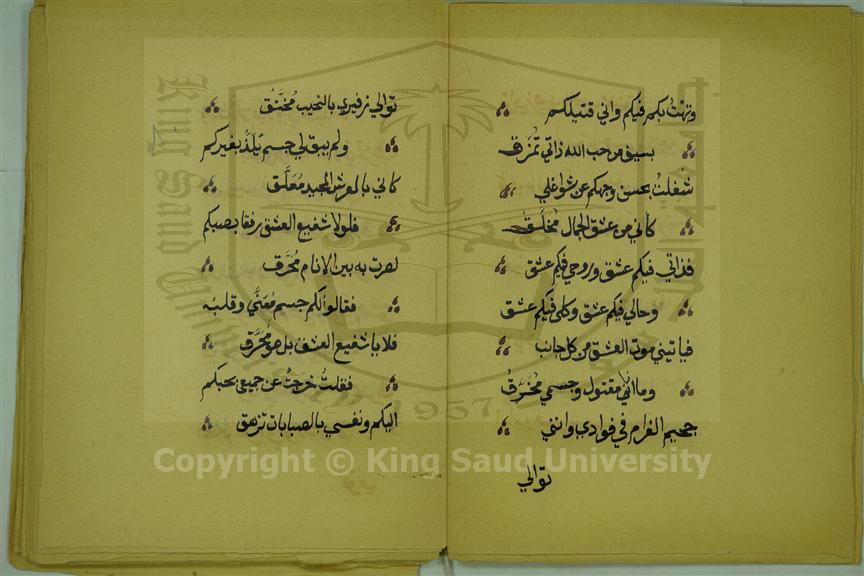 وتهت بكم فيكم واني قتيلكم
بسيف من حب الله ذاتي تمزق
شغلت بحسن وجهكم عن شواغلي
كأني من عشق الجمال مخلق
فذاتي فيكم عشق وروحي فيكم عشق
وحالي فيكم عشق وكلى فيكم عشق
فياتيني موت العشق من كل جانب
وما اني مقتول وجسمي مخرق
جحيم الغرام في فوادي وانني
توالي
توالي زفيري بالنحيب مخنق
ولم يبق لي جسم يلذ بغيركم
كاني بالعرش المجيد معلق
فلولا شفيع العشق رفقا بصبكم
لصرت به بين الانام محرق
فقالوا لكم جسم معنى وقلبه
فلا يا شفيع العشق بل هو محرق
فقلت خرجت عن جميعي بحبكم
اليكم ونفسي بالصبابات تزهق
Copyright © King Saud University
King Saud University
1957